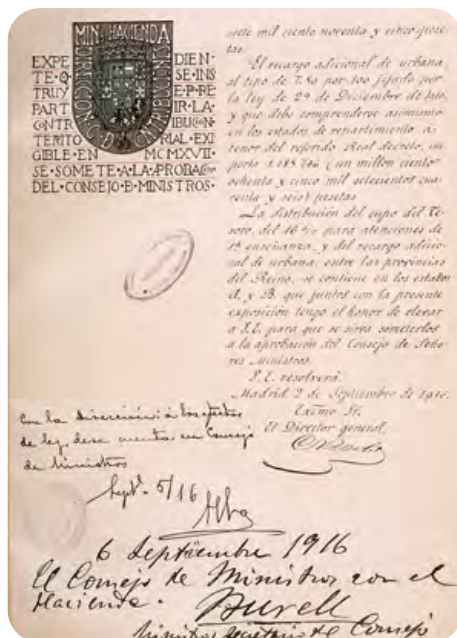 MIN. HACIENDA
DIRECCION G. D CONTRIBUCION
EXPE DIEN-
TE·Q SE·INS
TRUY E·P·RE
PART IR·LA·
CONTR IBUCON·
TERITO RIAL·EXI
GIBLE·EN MCMXVII·
SE·SOMETE·A·LA·PROBACON
DEL·CONSEJO·D·MINISTROS·
siete mil ciento noventa y cinco pese-
tas.
El recargo adicional de urbana
al tipo de 7.50 por 100 fijado por
la ley de 29 de Diciembre de 1910,
y que debe comprenderse asimismo
en los estados de repartimiento, a
tenor del referido Real decreto, im-
porta 1.185.746 (un millon ciento
ochenta y cinco mil setecientos cua-
renta y seis) pesetas
La distribución del cupo del Te-
soro, del 16 % para atenciones de
1ª enseñanza, y del recargo adicio-
nal de urbana, entre las provincias
del Reino, se contiene en los estados
A, y B, que juntos con la presente
exposición tengo el honor de elevar
a V.E. para que se sirva someterlos
a la aprobación del Consejo de Seño-
res Ministros.
V.E. resolverá.
Madrid 2 de Septiembre de 1916.
Excmo Sr.
El Director general,
Con la dirección á los efectos
de ley, dese cuenta en Consejo
de Ministros
Sept. 5/16
Alba
6 Septiembre 1916
El Consejo de Ministros con el
Hacienda.
Burell
Ministro secretario del Consejo